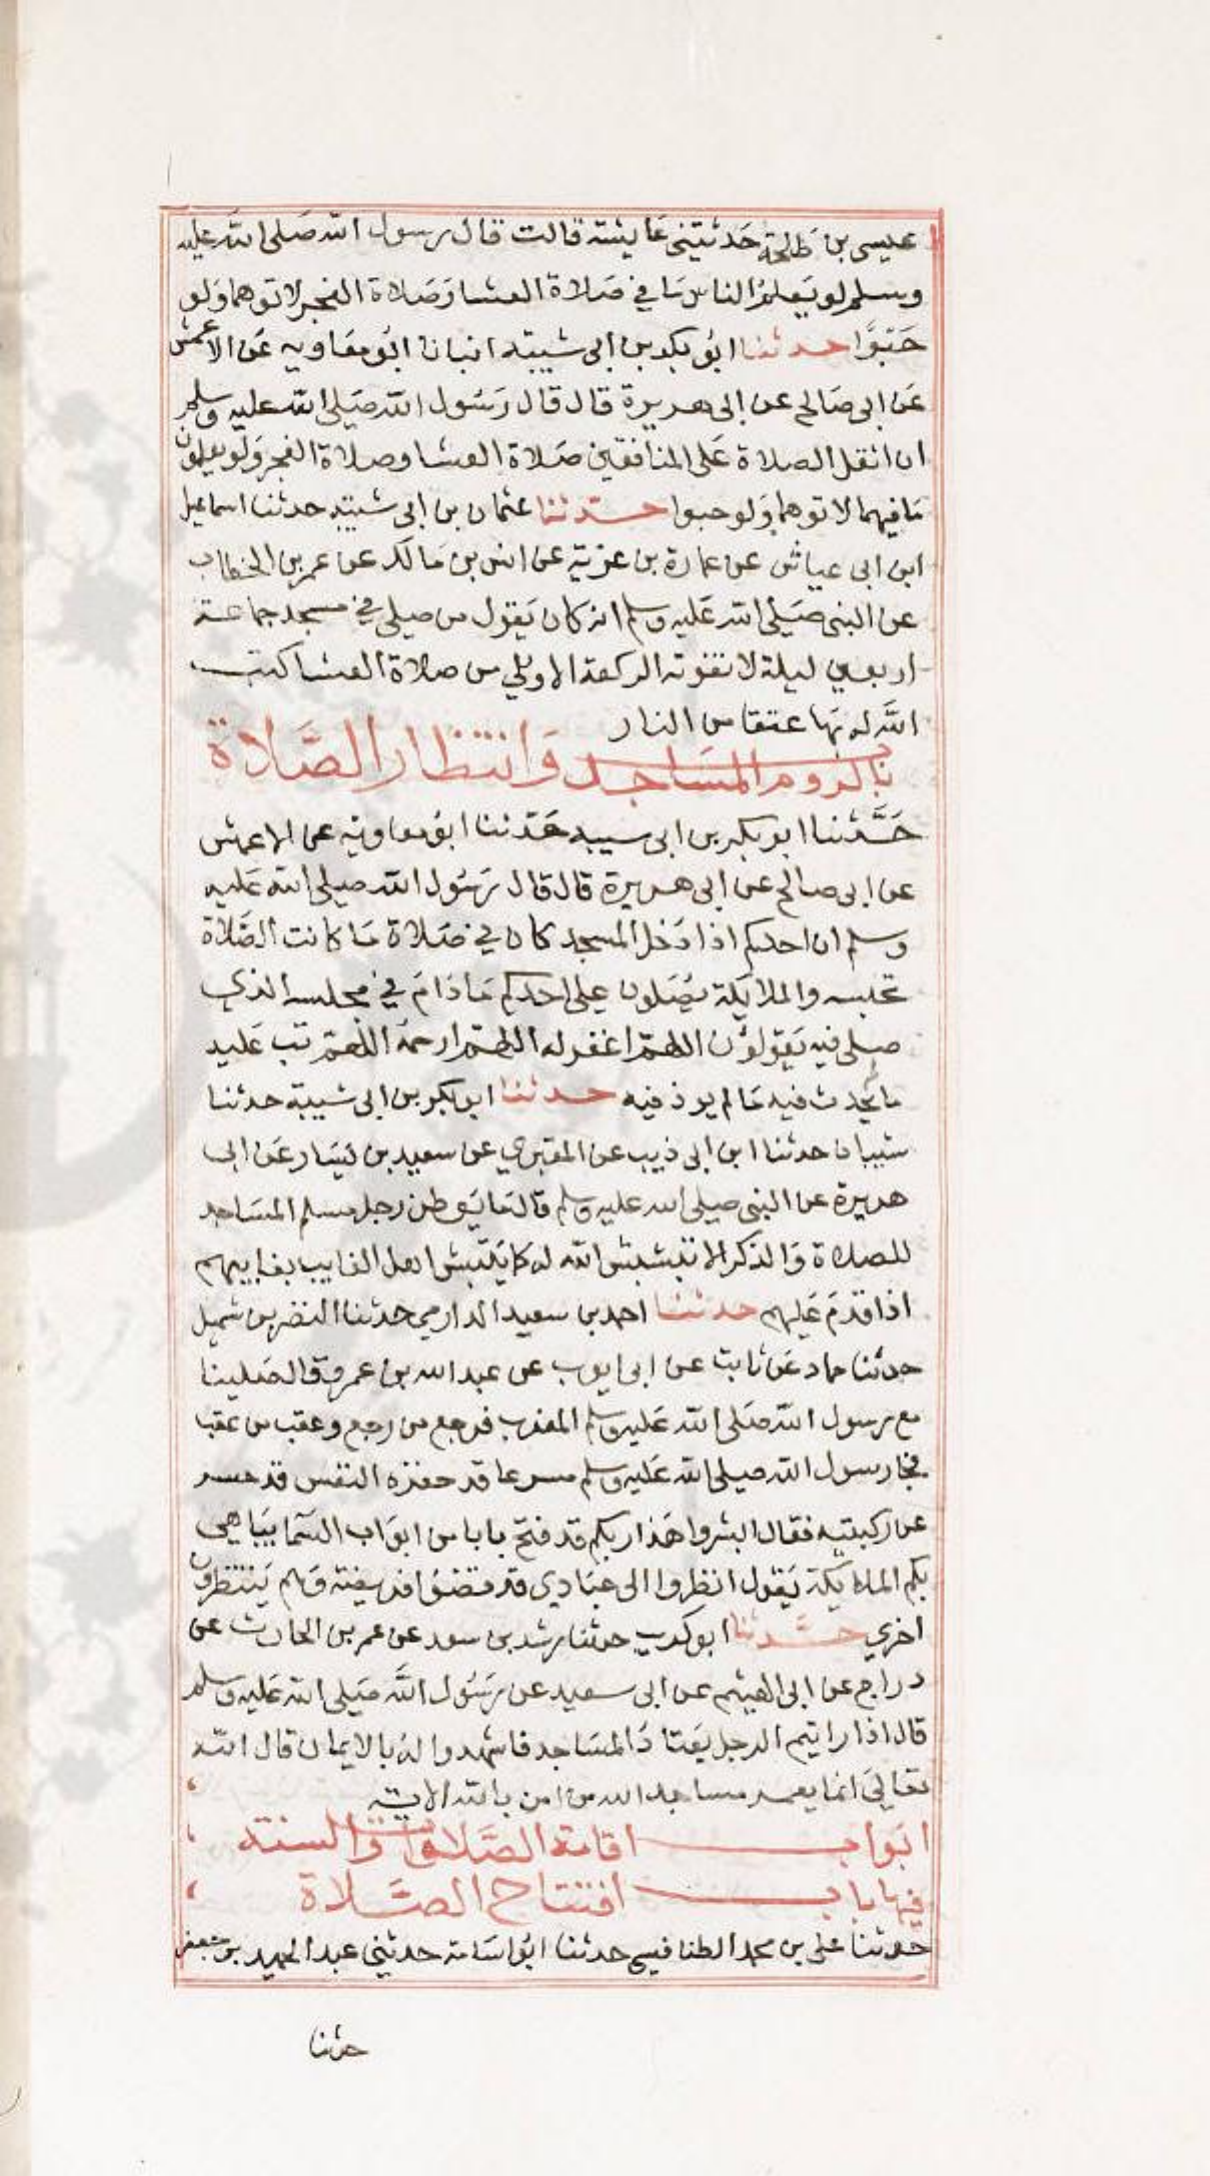 عيسى بن طلحة حدثتني عايشة قالت قال رسول الله صلى الله عليه
وسلم لو يعلم الناس ما في صلاة العشا وصلاة الفجر لاتوهما ولو
حبوا حدثنا ابو بكر بن ابي شيبة انبانا ابو معاويه عن الاعمش
عن ابي صالح عن ابي هريرة قال قال رسول الله صلى الله عليه وسلم
ان اثقل الصلاة على المنافقين صلاة العشا وصلاة الفجر ولو يعلمون
ما فيهما لاتوهما ولو حبوا حدثنا عثمان بن ابي شيبة حدثنا اسماعيل
ابن ابي عياش عن عمارة بن غزية عن انس بن مالك عن عمر بن الخطاب
عن النبي صلى الله عليه وسلم انه كان يقول من صلى في مسجد جماعة
اربعين ليلة لا تفوته الركعة الاولي من صلاة العشا كتب
الله له بها عتقا من النار
باب لزوم المساجد وانتظار الصلاة
حدثنا ابو بكر بن ابي شيبه حدثنا ابو معاوية عن الاعمش
عن ابي صالح عن ابي هريرة قال قال رسول الله صلى الله عليه
وسلم ان احدكم اذا دخل المسجد كان في صلاة ما كانت الصلاة
تحبسه والملايكة يصلون على احدكم ما دام في مجلسه الذي
صلى فيه يقولون اللهم اغفر له اللهم ارحمه اللهم تب عليه
ما لم يحدث فيه ما لم يوذ فيه حدثنا ابو بكر بن ابي شيبة حدثنا
شبابة حدثنا ابن ابي ذيب عن المقبري عن سعيد بن يسار عن ابي
هريرة عن النبي صلى الله عليه وسلم قال ما يوطن رجل مسلم المساجد
للصلاة والذكر الا تبشبش الله له كما يتبشبش اهل الغايب بغايبهم
اذا قدم عليهم حدثنا احمد بن سعيد الدارمي حدثنا النضر بن شميل
حدثنا حماد عن ثابت عن ابي ايوب عن عبد الله بن عمرو قال صلينا
مع رسول الله صلى الله عليه وسلم المغرب فرجع من رجع وعقب من عقب
فجا رسول الله صلى الله عليه وسلم مسرعا قد حفزه النفس قد حسر
عن ركبتيه فقال ابشروا هذا ربكم قد فتح بابا من ابواب السما يباهي
بكم الملايكة يقول انظروا الى عبادي قد قضوا فريضة وهم ينتظرون
اخري حدثنا ابو كريب حدثنا رشد بن سعد عن عمر بن الحارث عن
دراج عن ابي الهيثم عن ابي سعيد عن رسول الله صلى الله عليه وسلم
قال اذا رايتم الرجل يعتاد المساجد فاشهدوا له بالايمان قال الله
تعالي انما يعمر مساجد الله من امن بالله الاية
ابواب اقامة الصلاوت والسنة
فيها باب افتتاح الصلاة
حدثنا علي بن محمد الطنافسي حدثنا ابو اسامة حدثني عبد الحميد بن جعفر
حدثنا